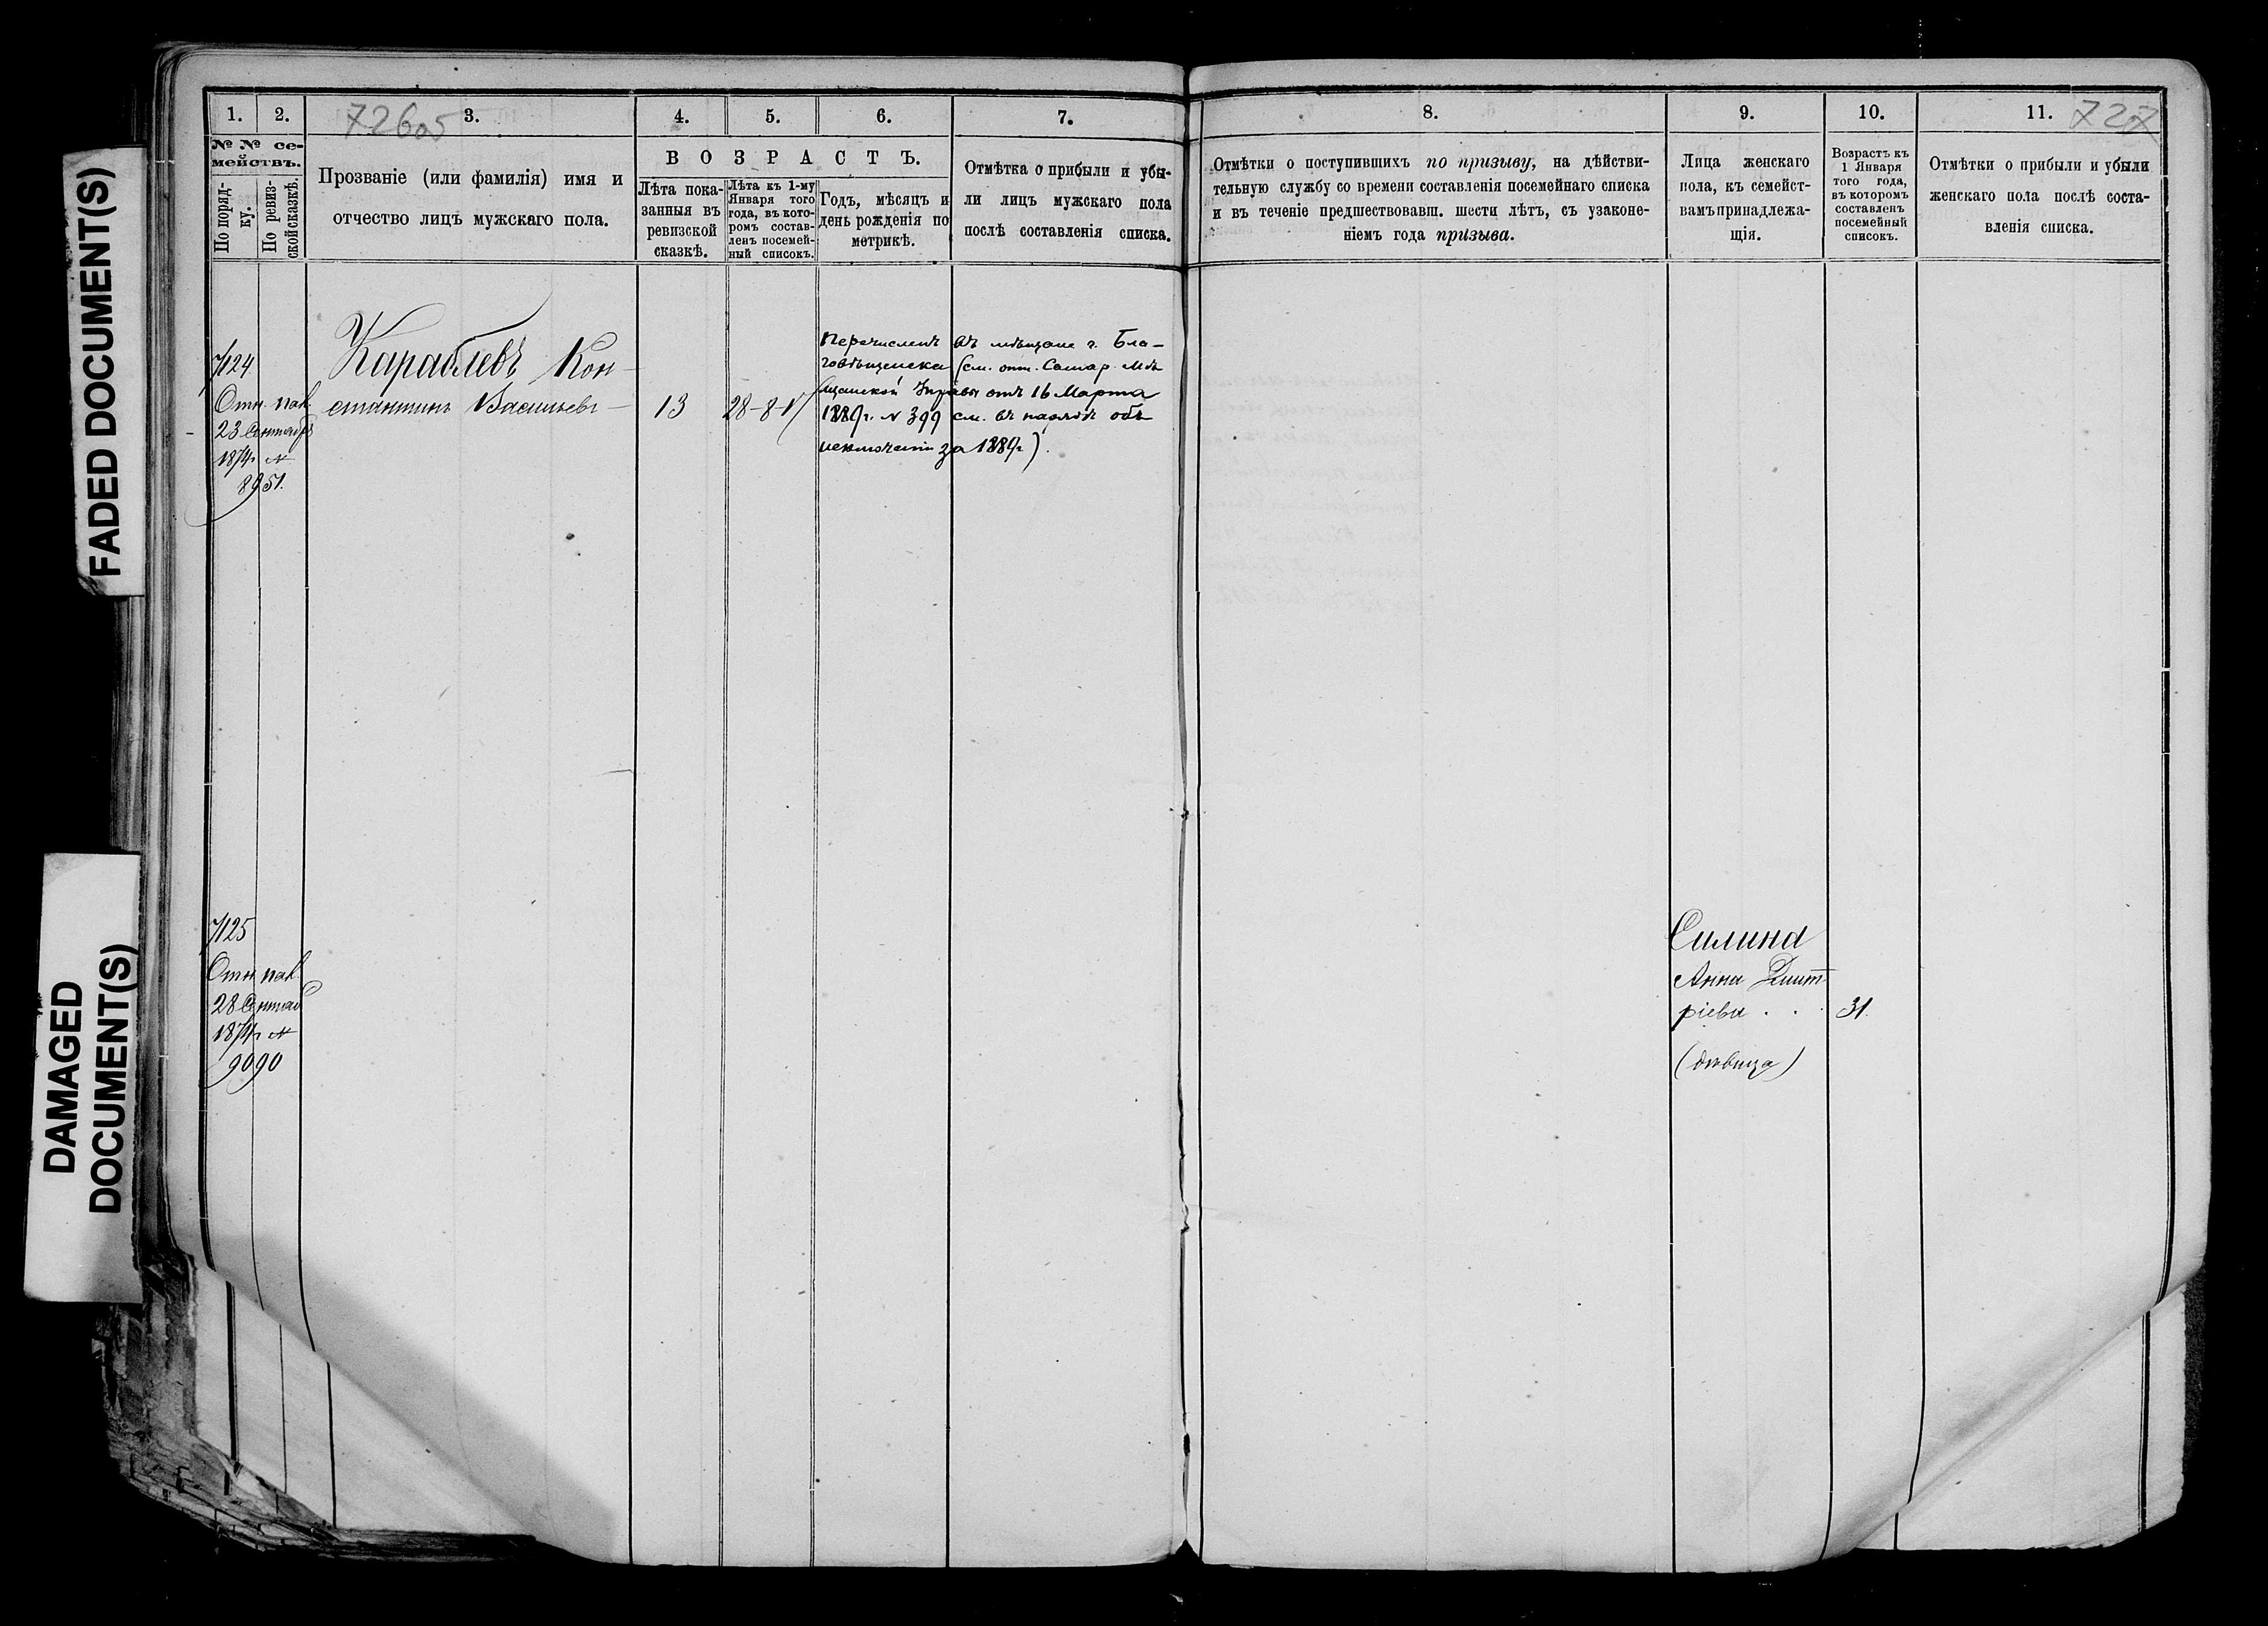 FADED DOCUMENT(S)
DAMAGED
DOCUMENT(S)
1.
2.
3.
4.
5.
6.
7.
726об
№ № се-
мействъ.
По поряд-
ку.
По ревиз-
ской сказкѣ.
Прозваніе (или фамилія) имя и
отчество лицъ мужскаго пола.
ВОЗРАСТЪ.
Лѣта пока-
занныя въ
ревизской
сказкѣ.
Лѣта къ 1-му
Января того
года, въ кото-
ромъ состав-
ленъ посемей-
ный списокъ.
Годъ, мѣсяцъ и
день рожденія по
метрикѣ.
Отмѣтка о прибыли и убы-
ли лицъ мужскаго пола
послѣ составленія списка.
7124
Отн. пал.
23 Сентябр
1874 г №
8951.
Караблевъ Кон-
стантинъ Васильевъ
13
28-8-
Перечисленъ въ мѣщане г. Бла-
говѣщенска (см. отн. Самар. Мѣ
щанской Управы отъ 16 Марта
1889 г. № 399 см. въ нарядѣ объ
исключеніи за 1889 г).
7125
Отн. пал.
28 Сентяб
1874 г №
9090
8.
9.
10.
11.
727
Отмѣтки о поступившихъ по призыву, на дѣйстви-
тельную службу со времени составленія посемейнаго списка
и въ теченіе предшествовавш. шести лѣтъ, съ узаконе-
ніемъ года призыва.
Лица женскаго
пола, къ семейст-
вамъ принадлежа-
щія.
Возрастъ къ
1 Января
того года,
въ которомъ
составленъ
посемейный
списокъ.
Отмѣтки о прибыли и убыли
женскаго пола послѣ соста-
вленія списка.
Силина
Анна Дмит-
ріева . . .
31.
(дѣвица)